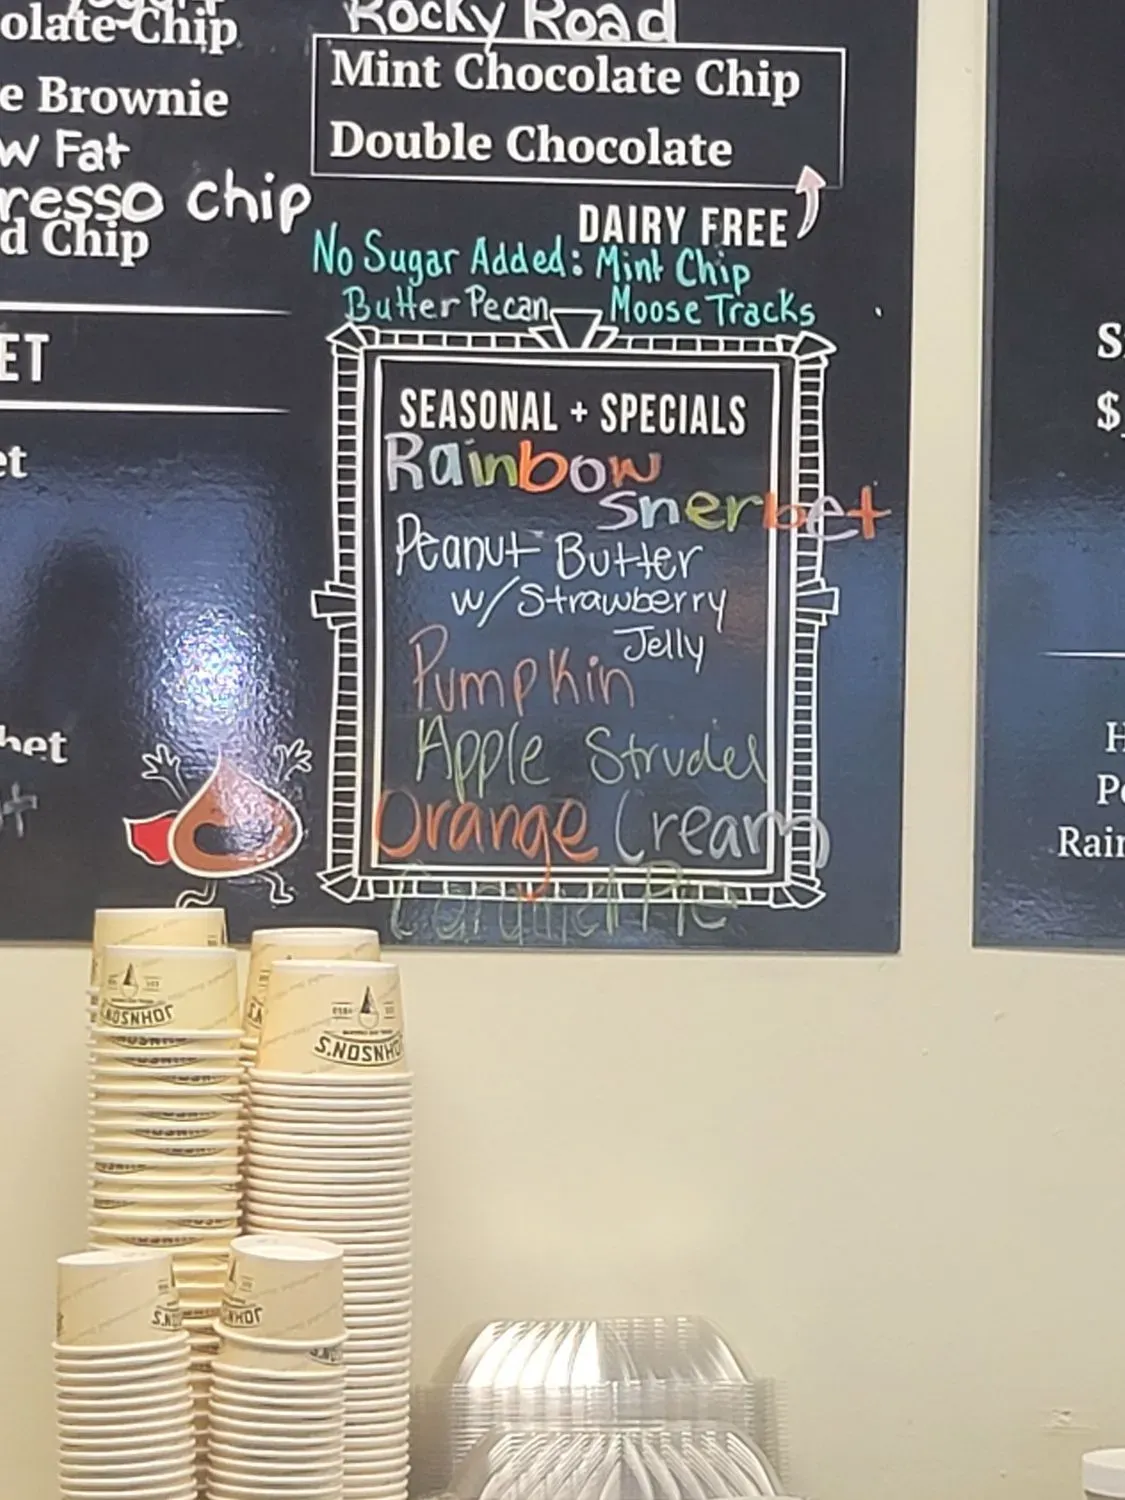 olate Chip
e Brownie
w Fat
resso chip
d Chip
ET
et
bet
Rocky Road
Mint Chocolate Chip
Double Chocolate
DAIRY FREE
No Sugar Added: Mint Chip
Butter Pecan Moose Tracks
SEASONAL + SPECIALS
Rainbow
Sherbet
Peanut Butter
w/ Strawberry
Jelly
Pumpkin
Apple Strudel
Orange Cream
Caramel Pie
S
$
H
P
Rain
JOHNSON'S
JOHNSON'S